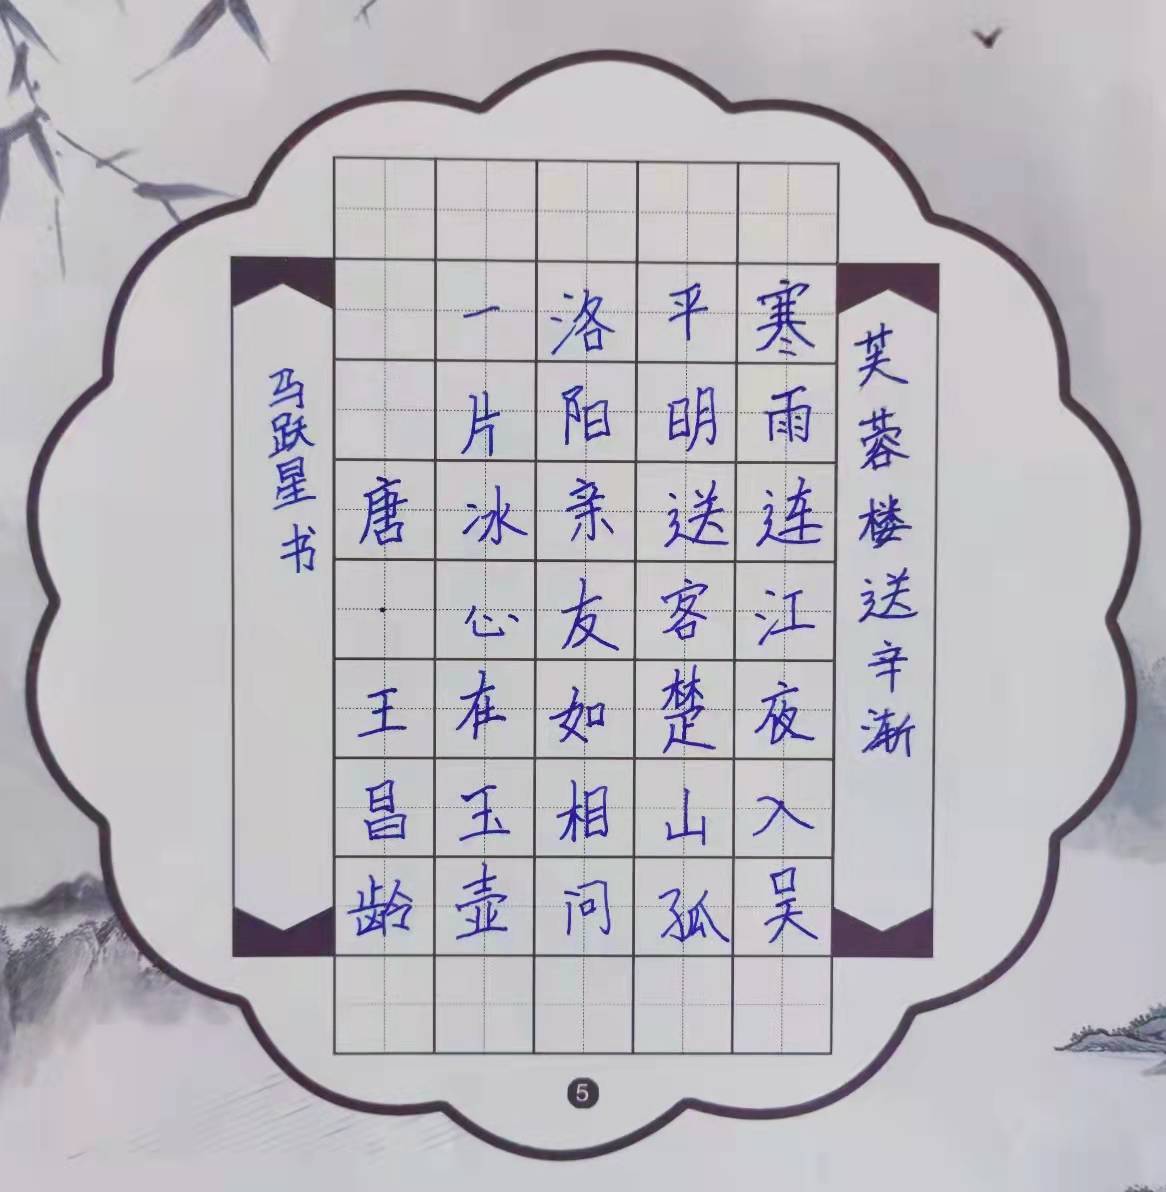 芙蓉楼送辛渐
寒雨连江夜入吴
平明送客楚山孤
洛阳亲友如相问
一片冰心在玉壶
唐·王昌龄
马跃星书
5